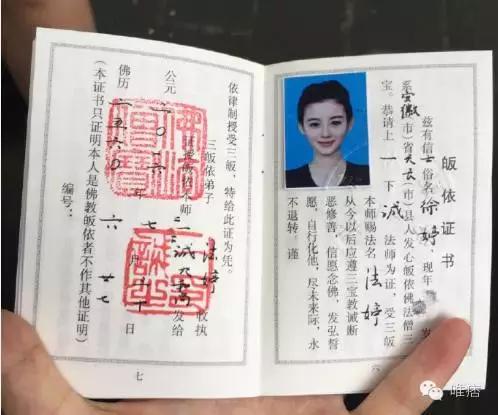 皈依证书
兹有信士俗名徐婷，现年 发
系安徽（市）省天长（市）县人发心皈依佛法僧三
宝。恭请上一下诚法师为证，受三皈
本师赐法名法婷
从今以后应遵三宝教诫断
恶修善，信愿念佛，发弘誓
愿，自行化他，尽未来际，永
不退转。谨
六
依律制授受三皈，特给此证为凭。
三皈依弟子 法婷 收执
皈依本师 一诚 发给
公元二〇 年七月
佛历二五六〇年六月廿七
（本证书只证明本人是佛教皈依者不作其他证明）
编号：
七
唯痞